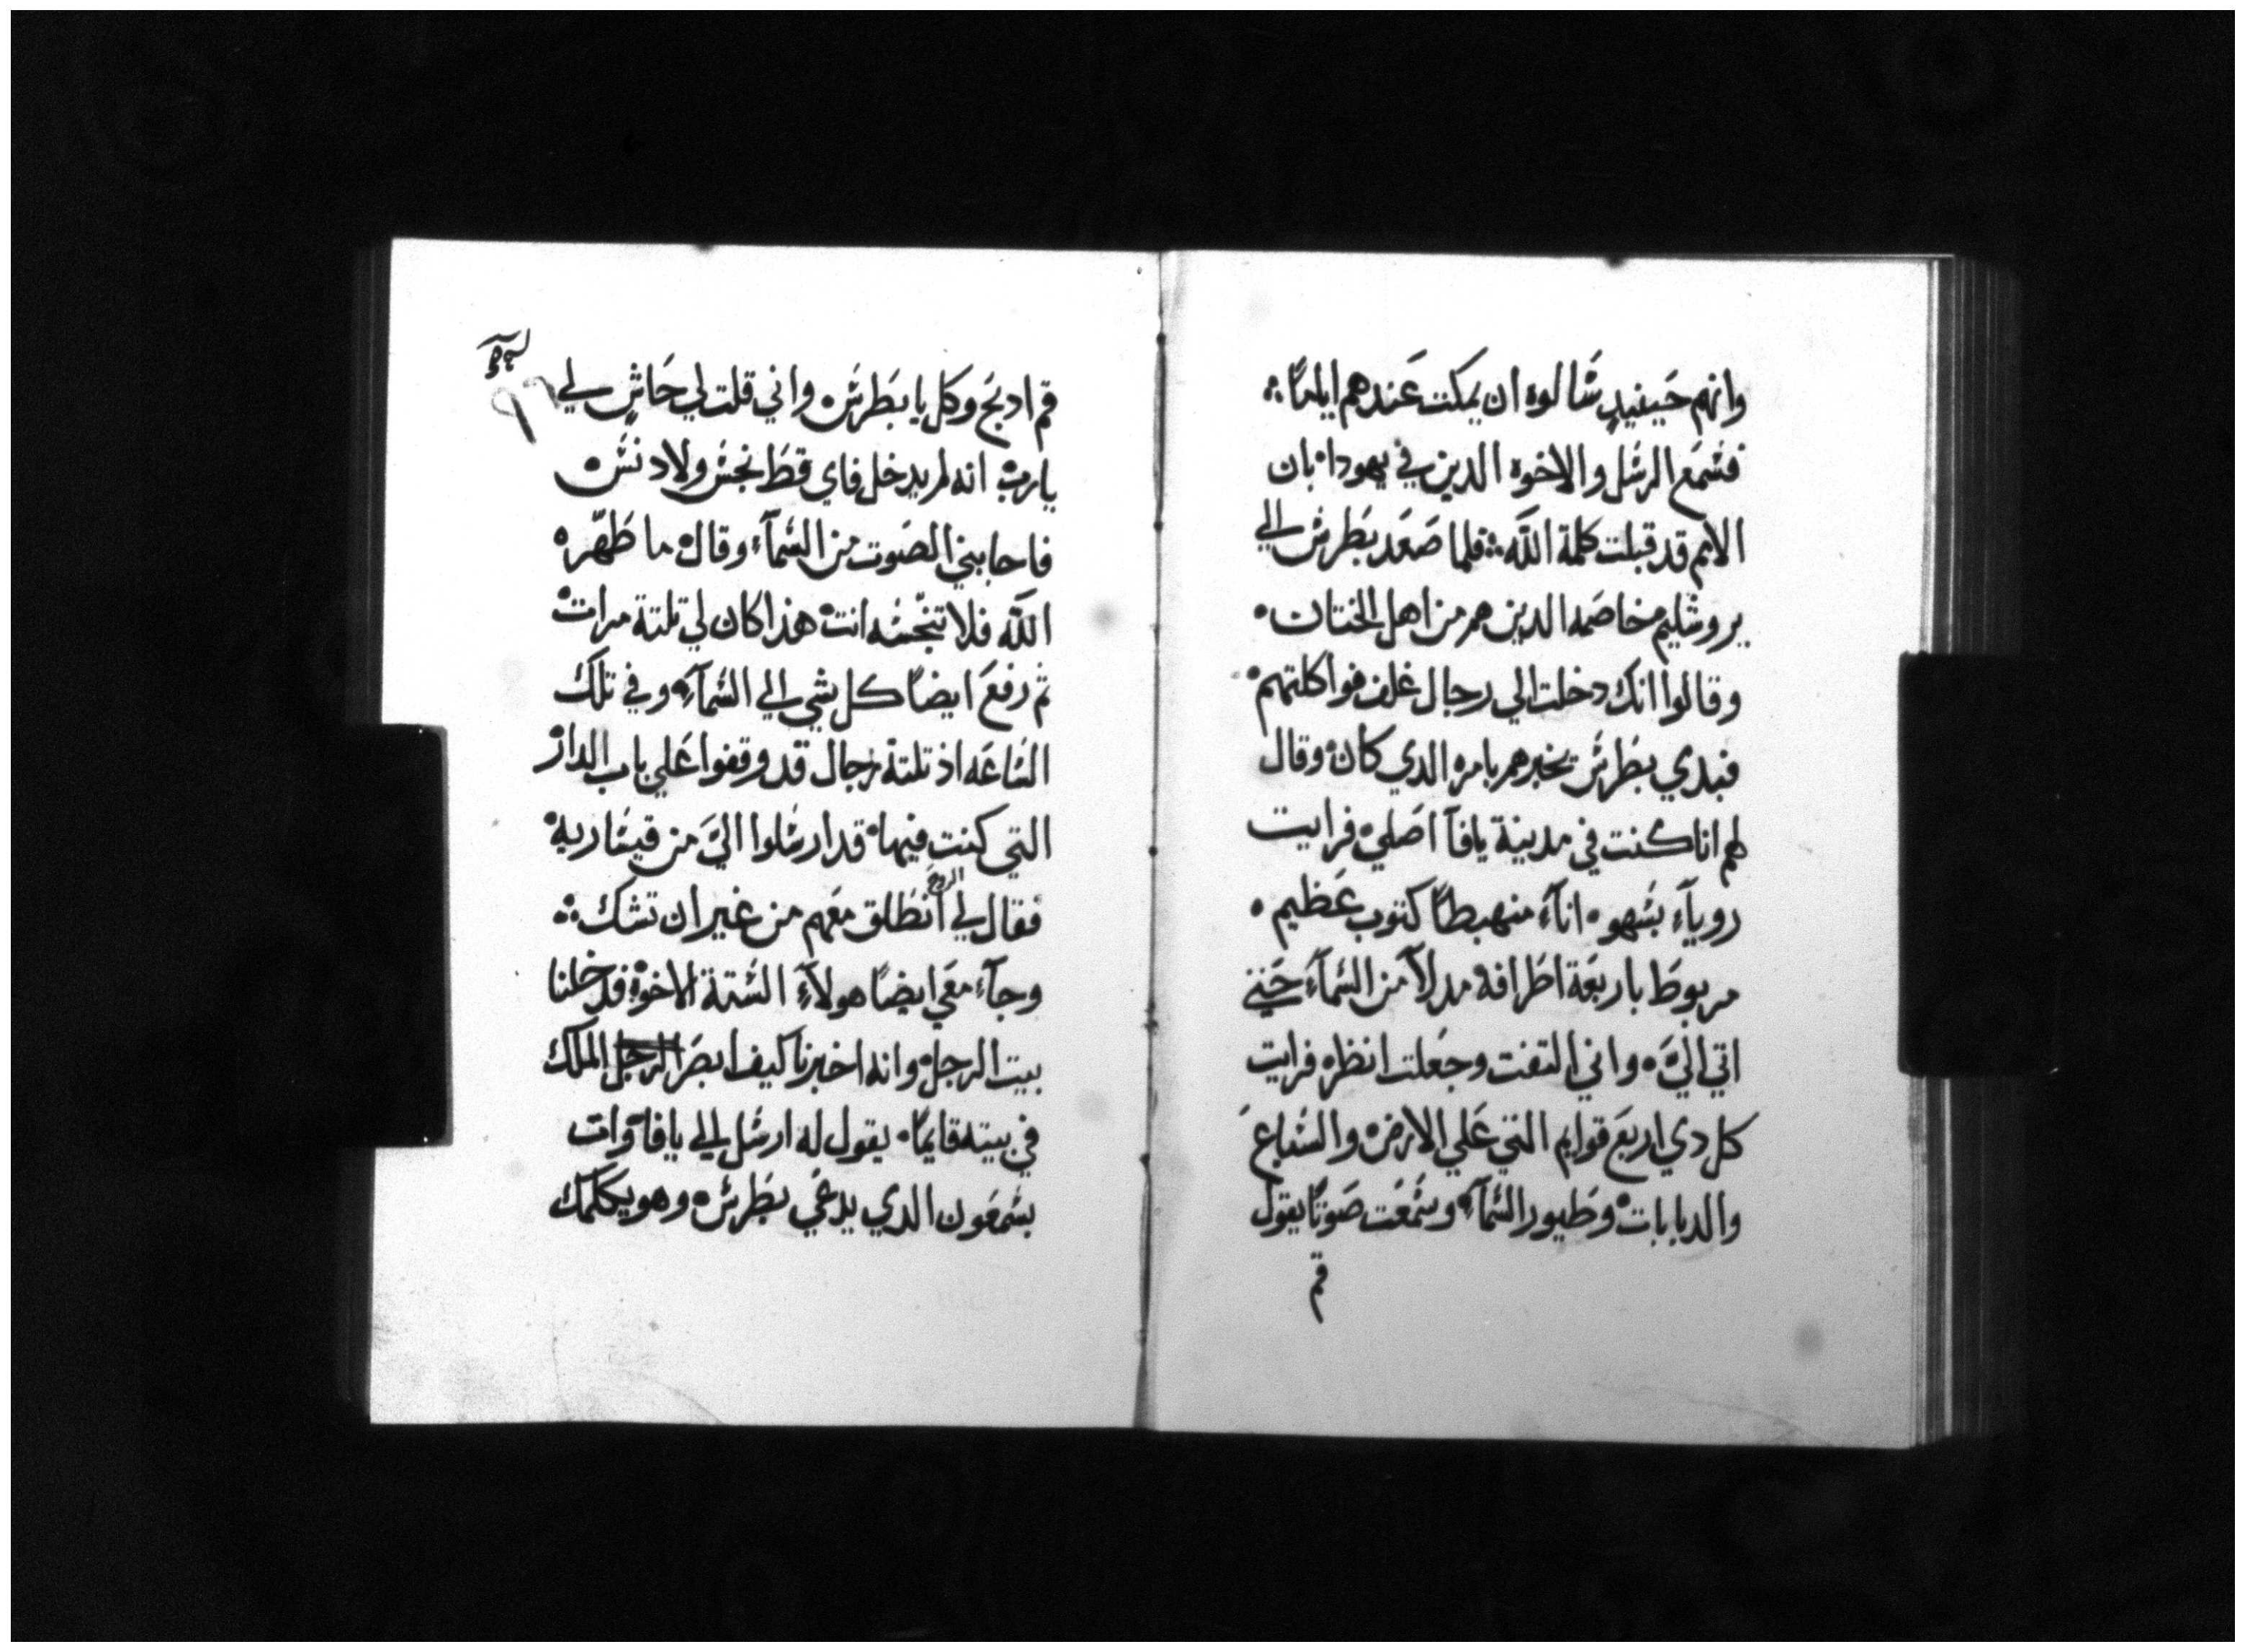 وانهم حَينيدٍ سَالوه ان يمكت عَندهم ايامًا ⁘
فسَمعَ الرسَل والاخوه الدين في يهودا بان
الامم قد قبلت كلمة اللَّه ⁘ فلما صَعَد بَطرسَ الي
يروشليم خاصَمه الدين هم من اهل الختان ۰
وقالوا انك دخلت الي رجال غلف فواكلتهم ۰
فبدي بطَرسَ يخبرهم بامره الدي كان ۰ وقال
لهم انا كنت في مدينة يافآ اصَلي ۰ فرايت
روياء بسَهو ۰ اناء منهبطاً كتوب عَظيم ۰
مربوطَ باربعَة اطَرافه مدلاً من السَماء حَتي
اتي اليَّ ۰ واني التفت وجعَلت انظره فرايت
كل دي اربعَ قوايم التي عَلي الارض ۰ والسَباعَ
والدبابات ۰ وطَيور السَماء ۰ وسَمعَت صَوتًا يقول
قم
قم ادبَح وكل يا بطَرسَ ۰ واني قلت لي حَاشٍ لي
يارب ۰ انه لم يدخل فاي قطَ نجسَ ولا دنسَ ۰
فاجابني الصَوت من السَماء ۰ وقال ۰ ما طَهّره
اللَّه فلا تنجّسَه انت ۰ هذا كان لي تلتة مرات ۰
ثم رفعَ ايضًا كل شي الي السَماء ۰ وفي تلك
السَاعَه اذ تلتة رجال قد وقفوا عَلي باب الدار
التي كنتِ فيها ۰ قد ارسَلوا اليَّ من قيسَاريه ۰
فقال لي الروح انطَلق معَهم من غير ان تشك ⁘
وجآء معَي ايضًا هولآءِ السَتة الاخوة ۰ فدخلنا
بيت الرجل ۰ وانه اخبرنا كيف ابصَر الرجل الملك
في بيته قايمًا ۰ يقول له ارسَل الي يافا ۰ وات
بسَمعَون الدي يدعَي بطَرسَ ۰ وهو يكلمك